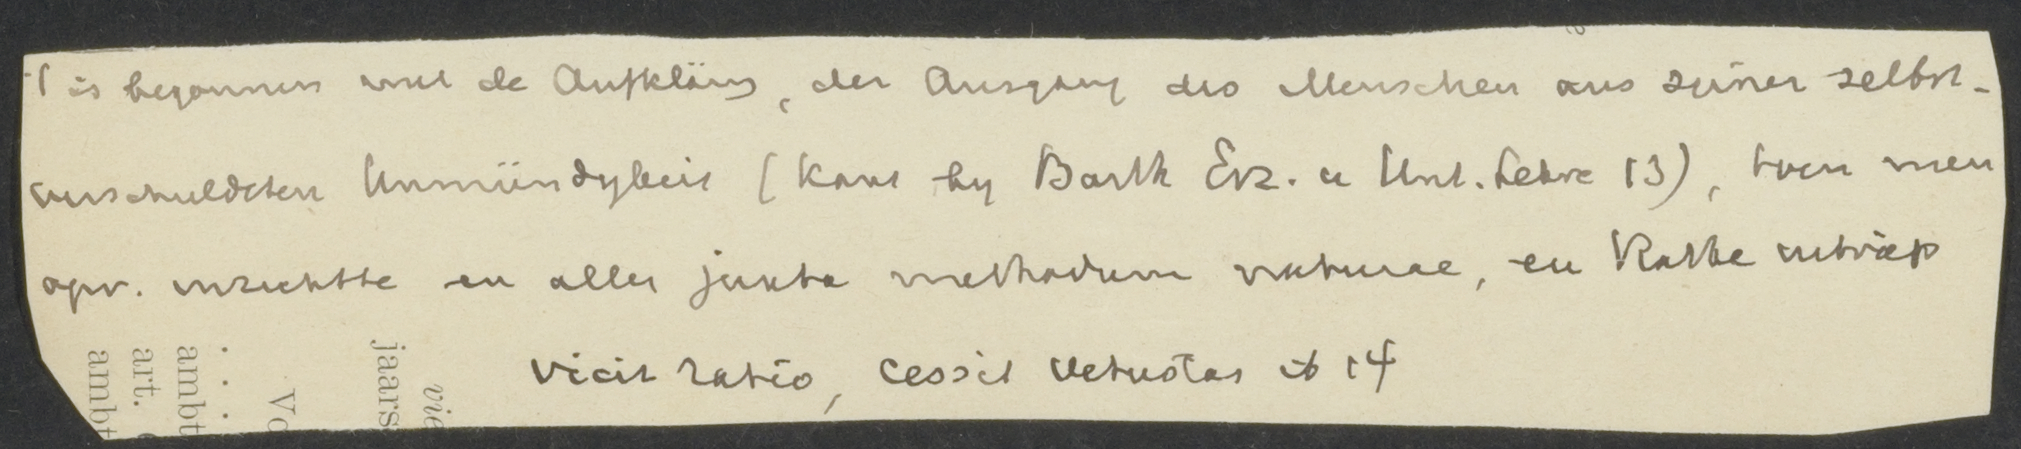 't is begonnen met de Aufklärg, der Ausgang des Menschen aus seiner selbst-
verschuldeten Unmündigkeit (Kant by Barth Erz. u Unt. Lehre 13), toen men
opv. inrichtte en alles juxta methodum naturae, en Ratke uitriep
vicit ratio, cessit vetustas ib 14
vie
jaars
Vo
. . .
ambt
art.
ambt